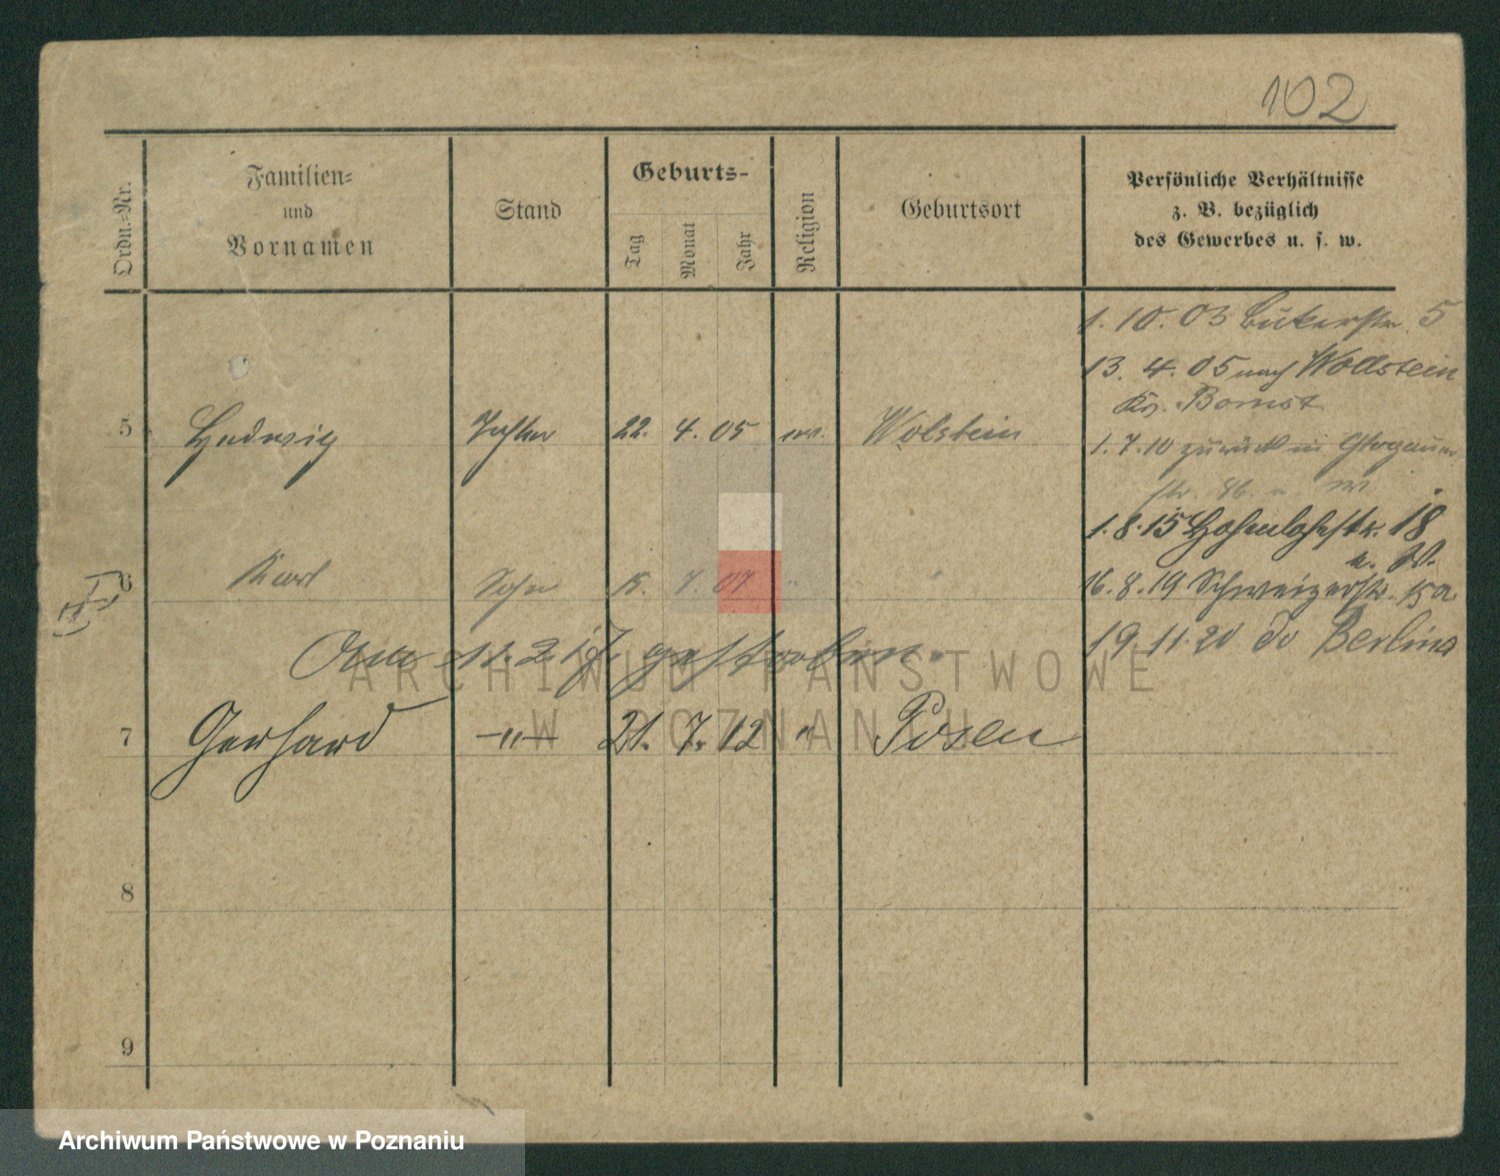 102
Ordn.=Nr.
Familien=
und
Vornamen
Stand
Geburts-
Tag
Monat
Jahr
Religion
Geburtsort
Persönliche Verhältnisse
z. B. bezüglich
des Gewerbes u. s. w.
1. 10. 03 Bukerstr. 5
13. 4. 05 nach Wollstein
Kr. Bomst
5 Hedwig Tochter 22. 4. 05 ev. Wolstein
1. 7. 10 zurück in Glogauer
str.
1. 8. 15 Hohenlohestr. 18
6 Karl Sohn 15. 7 07 " "
16. 8. 19 Schweizerstr. 15a
am 11. 2. 17. gestorben.
19. 11. 20 Berlin
7 Gerhard —"— 21. 7. 12 " Posen
8
9
ARCHIWUM PAŃSTWOWE
W POZNANIU
Archiwum Państwowe w Poznaniu